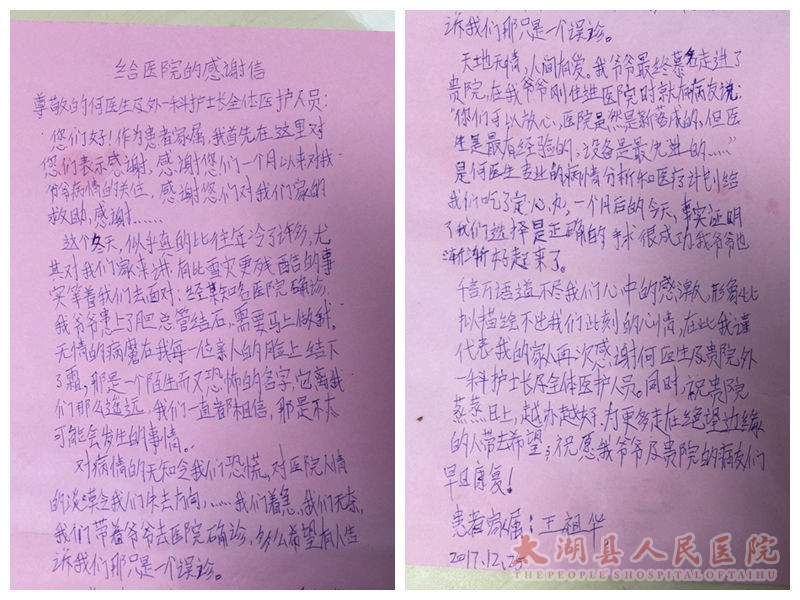 给医院的感谢信
尊敬的何医生及外一科护士长全体医护人员:
您们好!作为患者家属,我首先在这里对
您们表示感谢,感谢您们一个月以来对我
爷爷病情的关注,感谢您们对我们家的
救助,感谢……
这个冬天,似乎真的比往年冷了许多,尤
其对我们家来说有比雪灾更残酷的事
实等着我们去面对:经某知名医院确诊,
我爷爷患上了胆总管结石,需要马上做
无情的病魔在我每一位亲人的脸上结下
了霜,那是一个陌生而又恐怖的名字,它离我
们那么遥远,我们一直都相信,那是不太
可能会发生的事情。
对病情的无知令我们恐慌,对医院人情
的淡漠令我们失去方向,……我们着急,我们无奈,
我们带着爷爷去医院确诊,多么希望有人告
诉我们那只是一个误诊。
诉我们那只是一个误诊。
天地无情,人间有爱。我爷爷最终慕名走进了
贵院,在我爷爷刚住进医院时就有病友说:
“您们可以放心,医院虽然是新落成的,但医
生是最有经验的,设备是最先进的……”
是何医生专业的病情分析和医疗计划给
我们吃了定心丸,一个月后的今天,事实证明
了我们选择是正确的手术很成功我爷爷也
渐渐好起来了。
千言万语道不尽我们心中的感激,形象
拟描绘不出我们此刻的心情,在此我谨
代表我的家人再次感谢何医生及贵院外
一科护士长及全体医护人员。同时,祝贵院
蒸蒸日上,越办越好,为更多走在绝望边缘
的人带去希望;祝愿我爷爷及贵院的病友们
早日康复!
患者家属:王祖华
2017.12.25
太湖县人民医院
THE PEOPLE'S HOSPITAL OF TAIHU